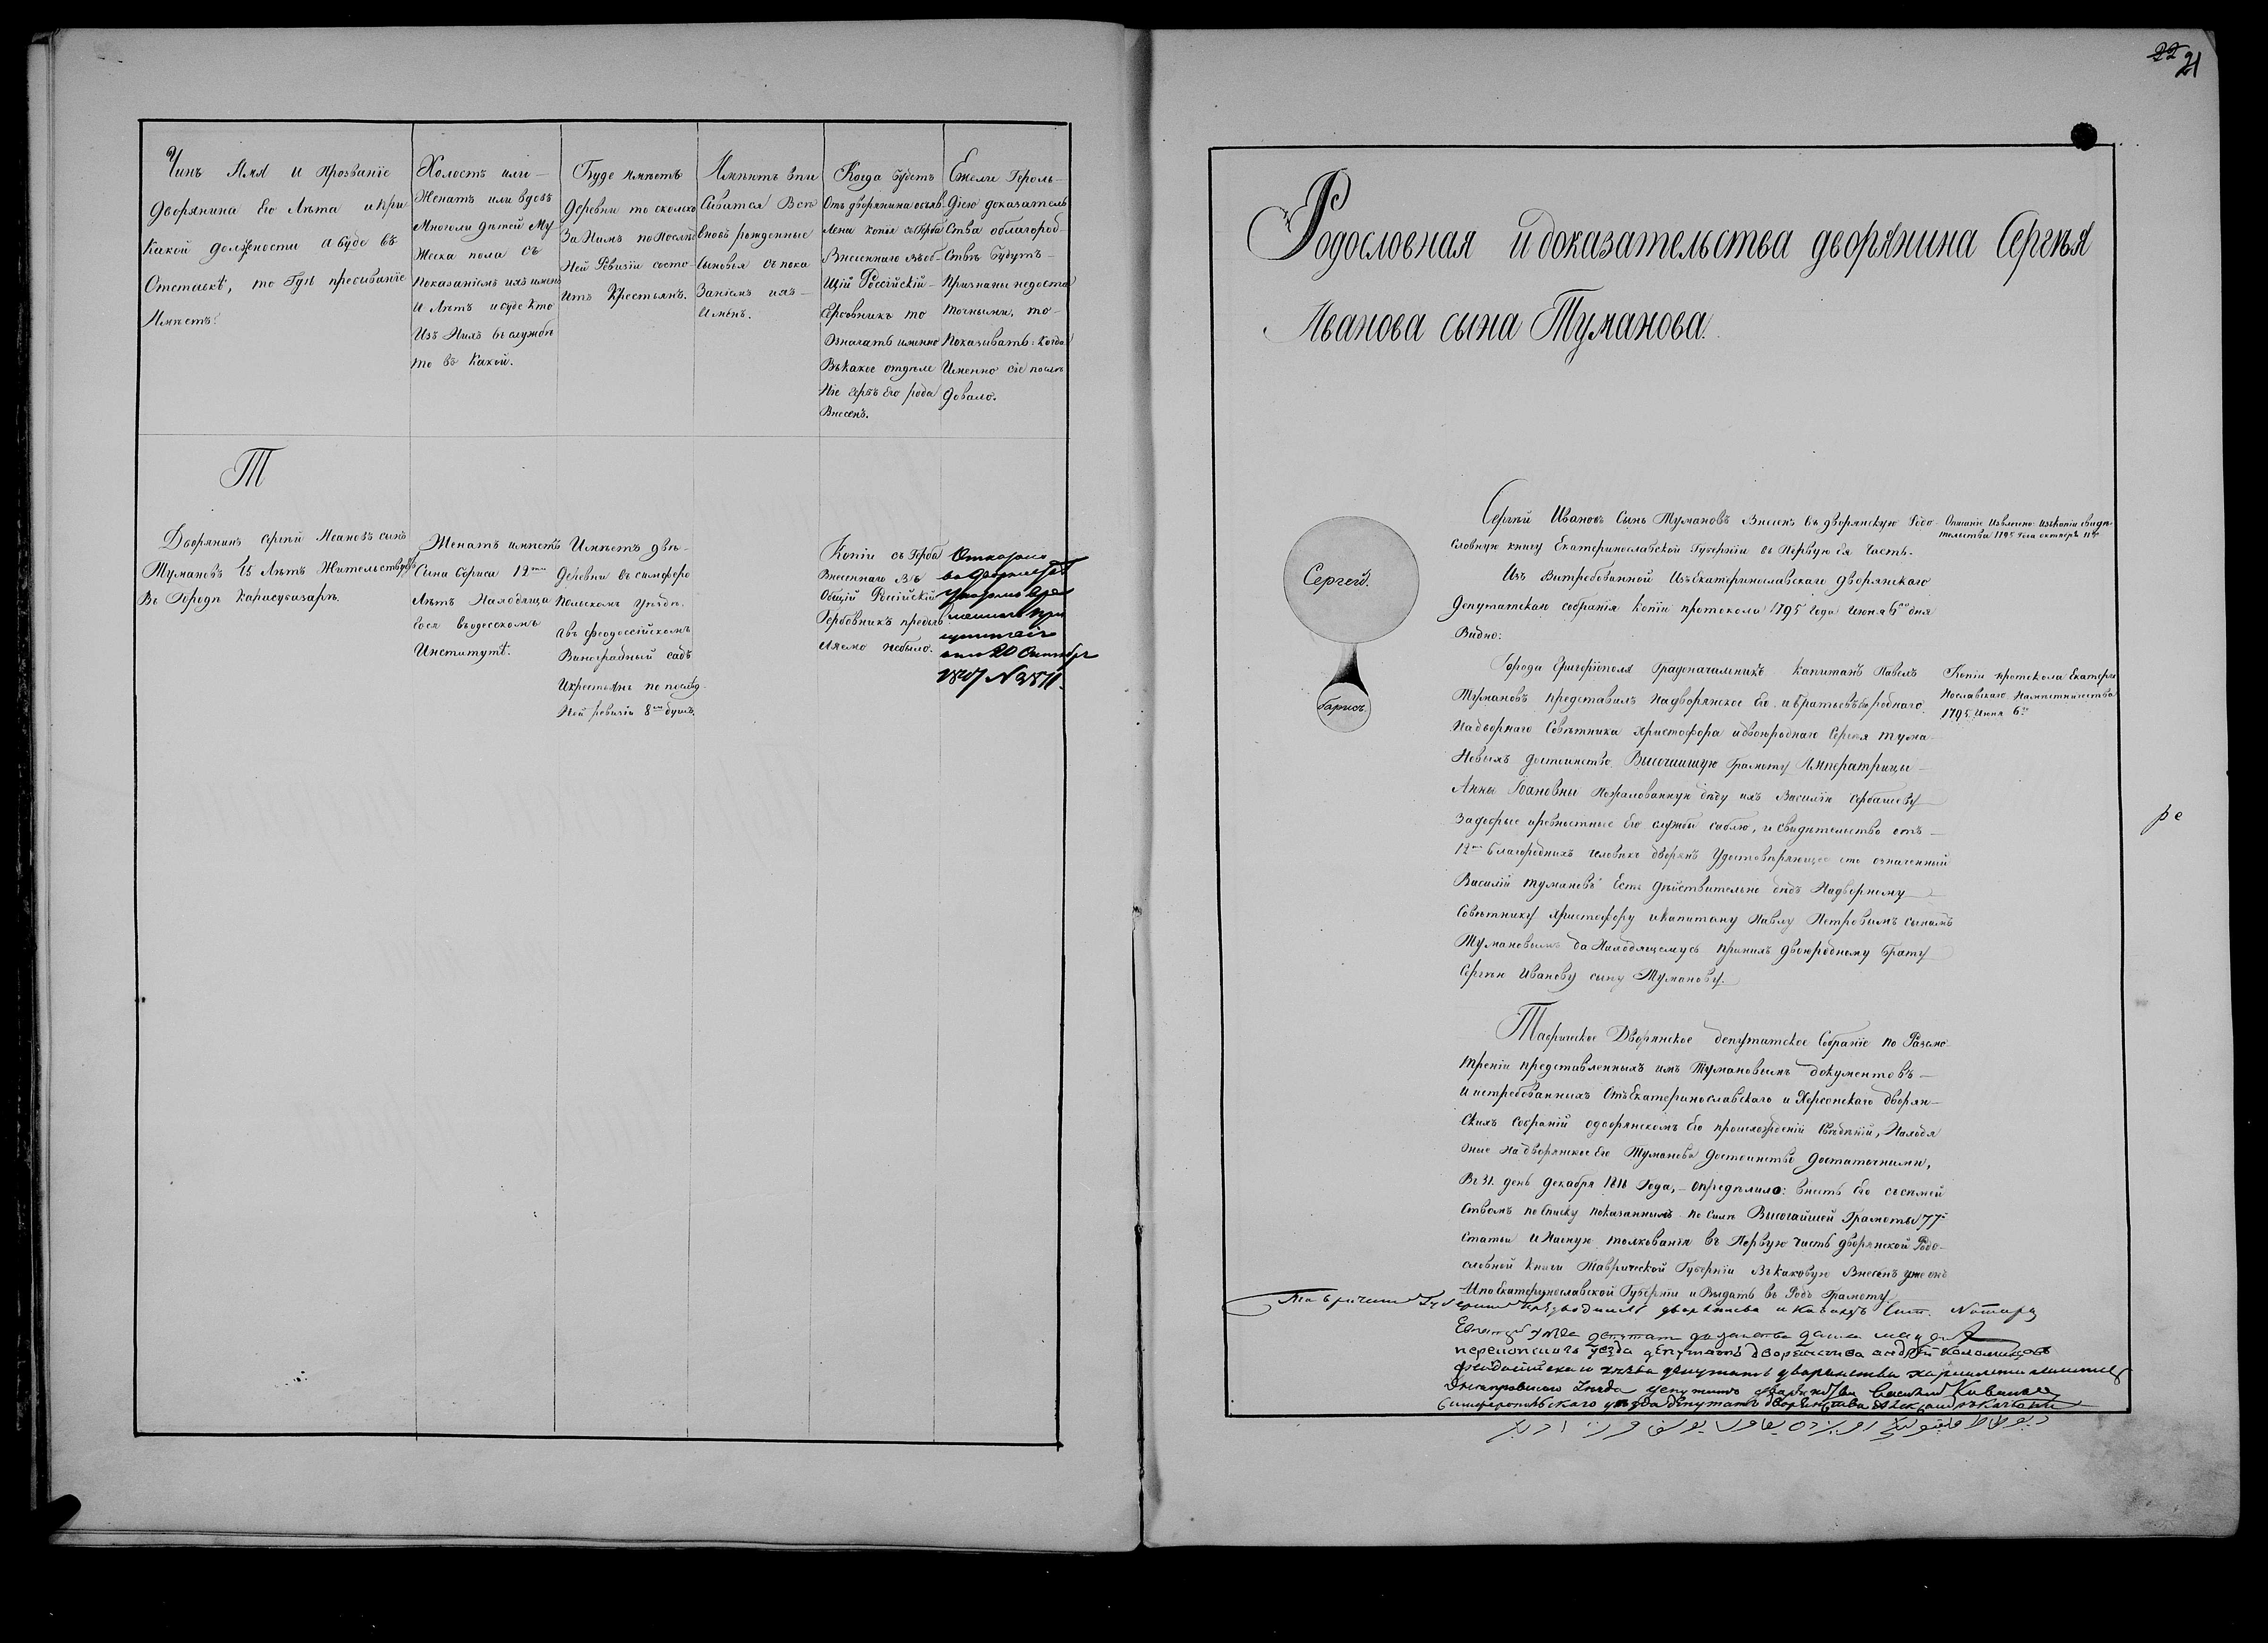 22 21
Чинъ Имя и прозваніе
Дворянина Его Лѣта и при
Какой должности а буде въ
Отставкѣ, то Гдѣ пребываніе
Имѣетъ.
Холостъ или
Женатъ или вдовъ
Многоли дѣтей Му-
Жеска пола съ
Показаніемъ ихъ именъ
И Лѣтъ и буде Кто
Изъ Нихъ въ службѣ
то въ Какой.
Буде имѣетъ
Деревни то сколько
За Нимъ по Послѣд
Ней Ревизіи состо
Итъ Крестьянъ.
Имѣютъ впи
Сыватся Всѣ
вновь рожденные
Сыновья съ пока
Заніемъ ихъ
Именъ.
Когда будетъ
Отъ дворянина объяв
Лена копія съ Герба
Внесеннаго въ об-
Щій Россійскій
Гербовникъ то
Означать именно
Въ какое отдѣле
Ніе гербъ Его рода
Внесенъ.
Ежели Героль-
Діею доказатель
Ства облагород-
Ствѣ будутъ
Признаны недоста
точными, то
Показывать: Когда
Именно сіе послѣ
довало.
Т
Дворянинъ Сергѣй Ивановъ сынъ
Тумановъ 45 Лѣтъ Жительствуетъ
Въ Городѣ Карасубазарѣ.
Женатъ имѣетъ
Сына Бориса 12ти
Лѣтъ Находяща
гося въ одесскомъ
Институтѣ.
Имѣетъ двѣ
Деревни въ симферо
польскомъ Уѣздѣ.
А въ феодосійскомъ
Виноградный садъ
И крестьянъ по послѣд-
Ней ревизіи 8мь душъ.
Копіи съ Герба
Внесеннаго Въ
Общій Россійскій
Гербовникъ предъяв
ляемо небыло.
Отказано
въ дворянствѣ
Указомъ Вре
меннаго при
сутствія
отъ 20 Октября
1847 N 3811.
Родословная и доказательства дворянина Сергѣя
Иванова сына Туманова.
Сергей.
Барисъ.
Сергѣй Ивановъ Сынъ Тумановъ Внесенъ въ дворянскую Родо-
словную книгу Екатеринославской Губерніи въ Первую ея Часть.
Описаніе Извлечено изъ Копіи свидѣ-
тельства 1795 Года октября 11го
Изъ Витребованной Изъ Екатеринославскаго дворянскаго
Депутатскаго собранія Копіи протокола 1795 Года Июня 6го дня
Видно:
Города Григоріополя Градоначальникъ Капитанъ Павелъ
Тумановъ представилъ На дворянское Его и братьевъ Его роднаго
Надворнаго Совѣтника Христофора и двоюроднаго Сергея Тума-
Новыхъ достоинство Высочайшую Грамоту Императрицы
Анны Іоановны Пожалованную дѣду ихъ Василію Сербашеву
За добрые и ревностные Его службы саблю, и свидѣтельство отъ
12ти благородныхъ человѣкъ дворянъ Удостовѣряющее что означенный
Василій Тумановъ Есть дѣйствительно дѣдъ Надворному
Совѣтнику Христофору и Капитану Павлу Петровымъ сынамъ
Тумановымъ да Находящемуся при нихъ двоюродному брату
Сергѣю Иванову сыну Туманову.
Копіи протокола Екатери
Нославскаго Намѣстничества
1795 Июня 6го
ре
Таврическое Дворянское депутатское Собраніе по Разсмо-
трѣніи представленныхъ имъ Тумановымъ документовъ
И истребованныхъ Отъ Екатеринославскаго и Херсонскаго дворян-
Скихъ Собраній о дворянскомъ Его происхожденіи Свѣдѣній, Находя
оные на дворянское Его Туманова достоинство достаточными,
Въ 31. день декабря 1818 Года, опредѣлило: внесть Его съ семей
ствомъ по Списку показаннымъ по Силѣ Высочайшей Грамоты 77й
Статьи И На оную толкованія въ Первую часть дворянской Родо-
словной книги Таврической Губерніи Въ каковую Внесенъ уже онъ
И по Екатеринославской Губерніи и Выдать въ Родъ Грамоту.
Таврической Губерніи предводитель дворянства и Кавалеръ Ст. Нотара
Перекопскаго уезда депутатъ дворянства андрей Коломийцовъ
Феодосійскаго уѣзда депутатъ дворянства
Днепровскаго Уезда депутатъ дворянства Василий
Симферопольскаго уезда депутатъ дворянства Александръ Качони